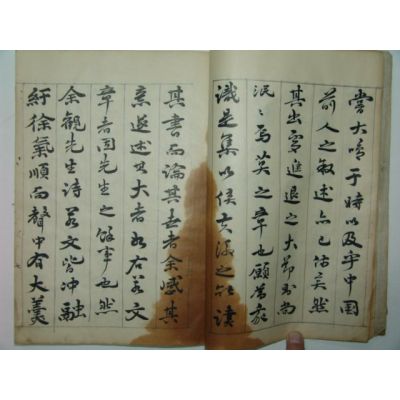 嘗大鳴于時以及乎中國
前人之敘述亦已備矣然
其出處進退之大節則尚
泯〻焉莫之章也顧
識是集以俟玄議之 讀
其書而論其世者余感其
意遂述其大者如右若文
章者固先生之餘事也然
余觀先生詩若文皆冲融
紆徐氣順而聲中有大羹